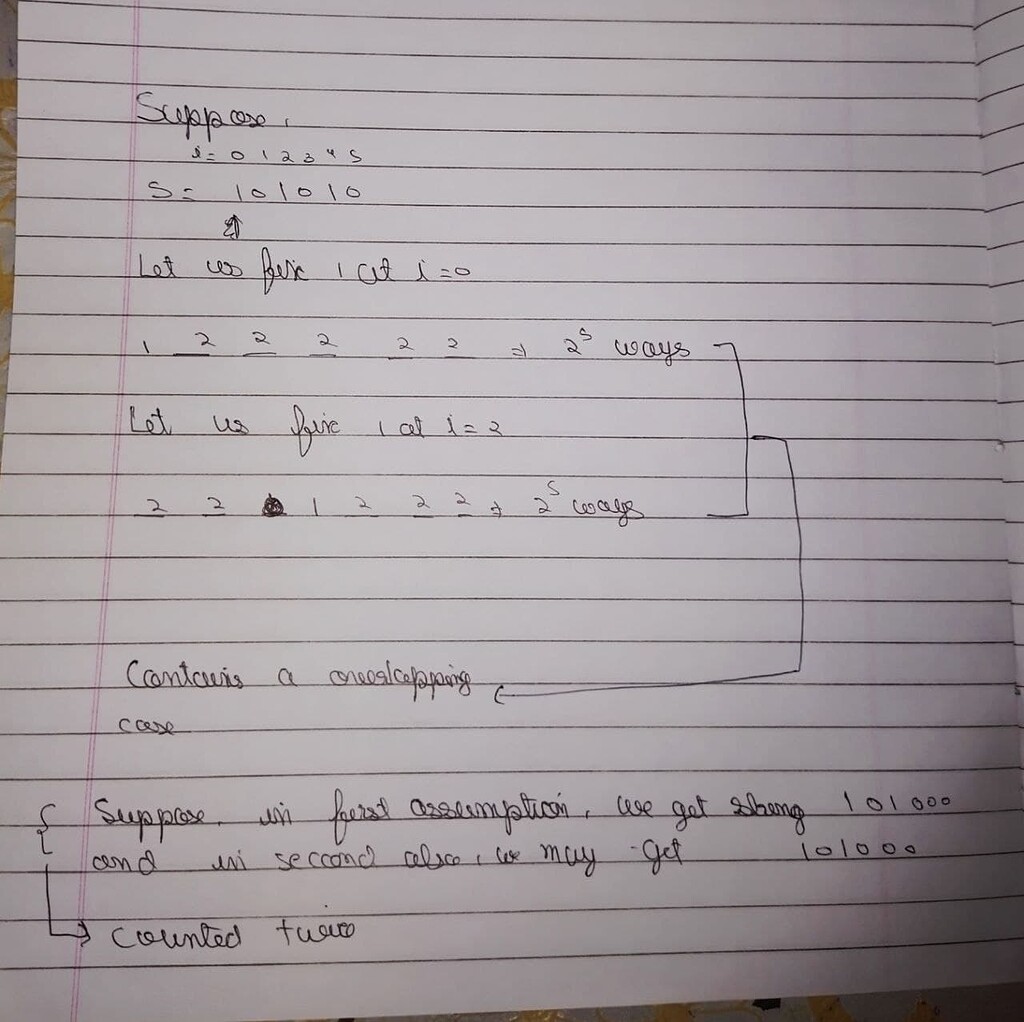 Suppose,
i = 0 1 2 3 4 5
S = 1 0 1 0 1 0
Let us fix 1 at i = 0
1 2 2 2 2 2 ⇒ 2^5 ways
Let us fix 1 at i = 2
2 2 1 2 2 2 ⇒ 2^5 ways
Contains a overlapping
case
{ Suppose, in first assumption, we get string 101000
and in second also, we may get 101000
→ counted twice